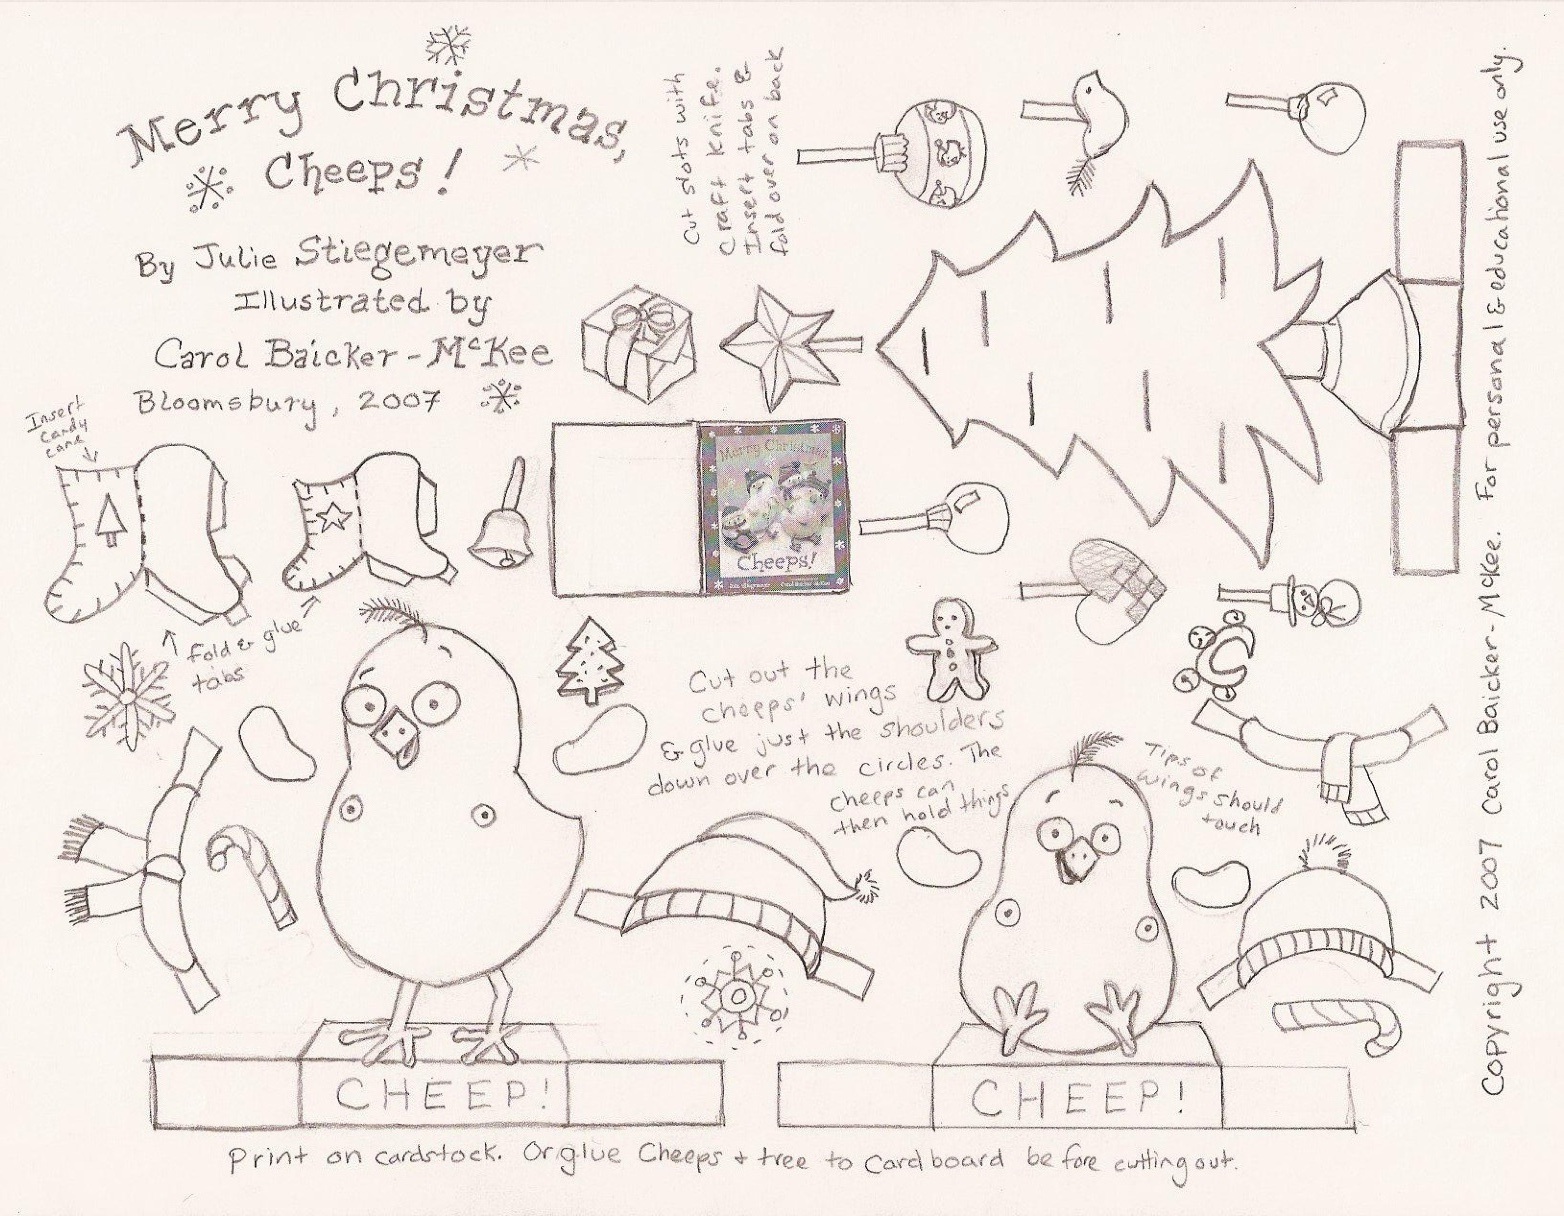 Merry Christmas,
Cheeps!
By Julie Stiegemeyer
Illustrated by
Carol Baicker-McKee
Bloomsbury, 2007
Cut slots with
craft knife.
Insert tabs &
fold over on back
Insert
candy
cane
fold & glue
tabs
Merry Christmas,
Cheeps!
Cut out the
cheeps' wings
& glue just the shoulders
down over the circles. The
cheeps can
then hold things
Tips of
wings should
touch
CHEEP!
CHEEP!
Print on cardstock. Or glue Cheeps + tree to Cardboard before cutting out.
Copyright 2007 Carol Baicker-McKee. For personal & educational use only.